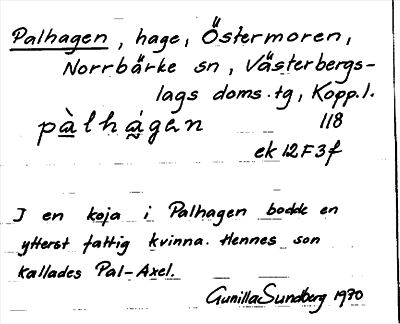 Palhagen, hage, Östermoren,
Norrbärke sn, Västerbergs-
lags doms. tg, Kopp. l.
pàlhágen 118
ek 12F3f
I en koja i Palhagen bodde en
ytterst fattig kvinna. Hennes son
kallades Pal-Axel.
Gunilla Sundberg 1970